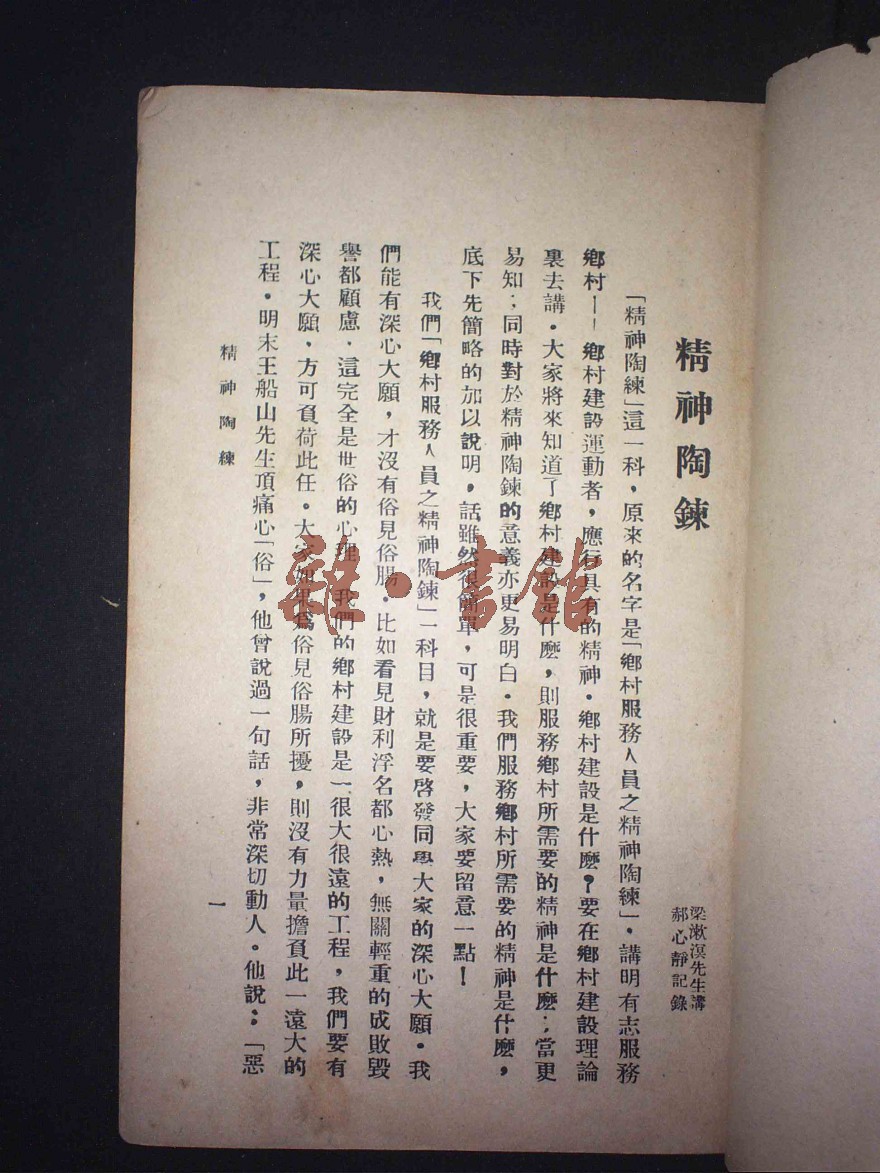 精神陶鍊
梁漱溟先生講
郝心靜記錄
「精神陶練」這一科，原來的名字是「鄉村服務人員之精神陶練」．講明有志服務
鄉村——鄉村建設運動者，應行具有的精神．鄉村建設是什麼？要在鄉村建設理論
裏去講．大家將來知道了鄉村建設是什麼，則服務鄉村所需要的精神是什麼；當更
易知；同時對於精神陶鍊的意義亦更易明白．我們服務鄉村所需要的精神是什麼，
底下先簡略的加以說明，話雖然很簡單，可是很重要，大家要留意一點！
我們「鄉村服務人員之精神陶鍊」一科目，就是要啓發同學大家的深心大願．我
們能有深心大願，才沒有俗見俗腸．比如看見財利浮名都心熱，無關輕重的成敗毀
譽都顧慮．這完全是世俗的心理．我們的鄉村建設是一很大很遠的工程，我們要有
深心大願，方可負荷此任．大家如果爲俗見俗腸所擾，則沒有力量擔負此一遠大的
工程．明末王船山先生頂痛心「俗」，他曾說過一句話，非常深切動人。他說：「惡
精神陶練
一
雜·書館